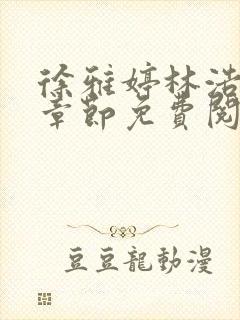 徐雅婷林浩
章節免費閱
豆豆龍動漫